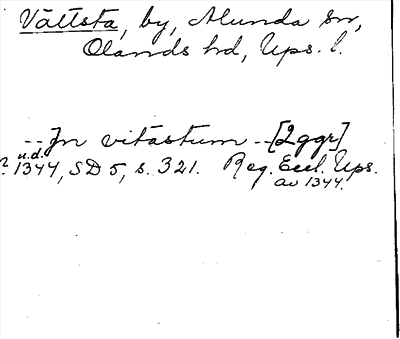 Vättsta, by, Alunda sn,
Olands hd, Ups. l.
-- Jn vitastum -- [2 ggr]
u.d.
? 1344, SD 5, s. 321. Reg. Eccl. Ups.
av 1344.